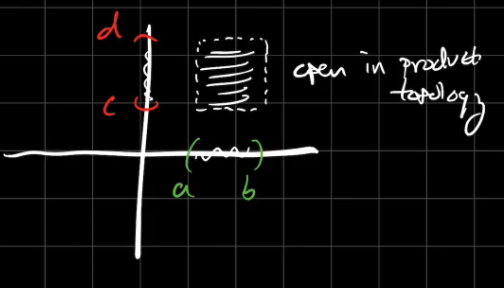 d
open in product
topology
c
( )
a b